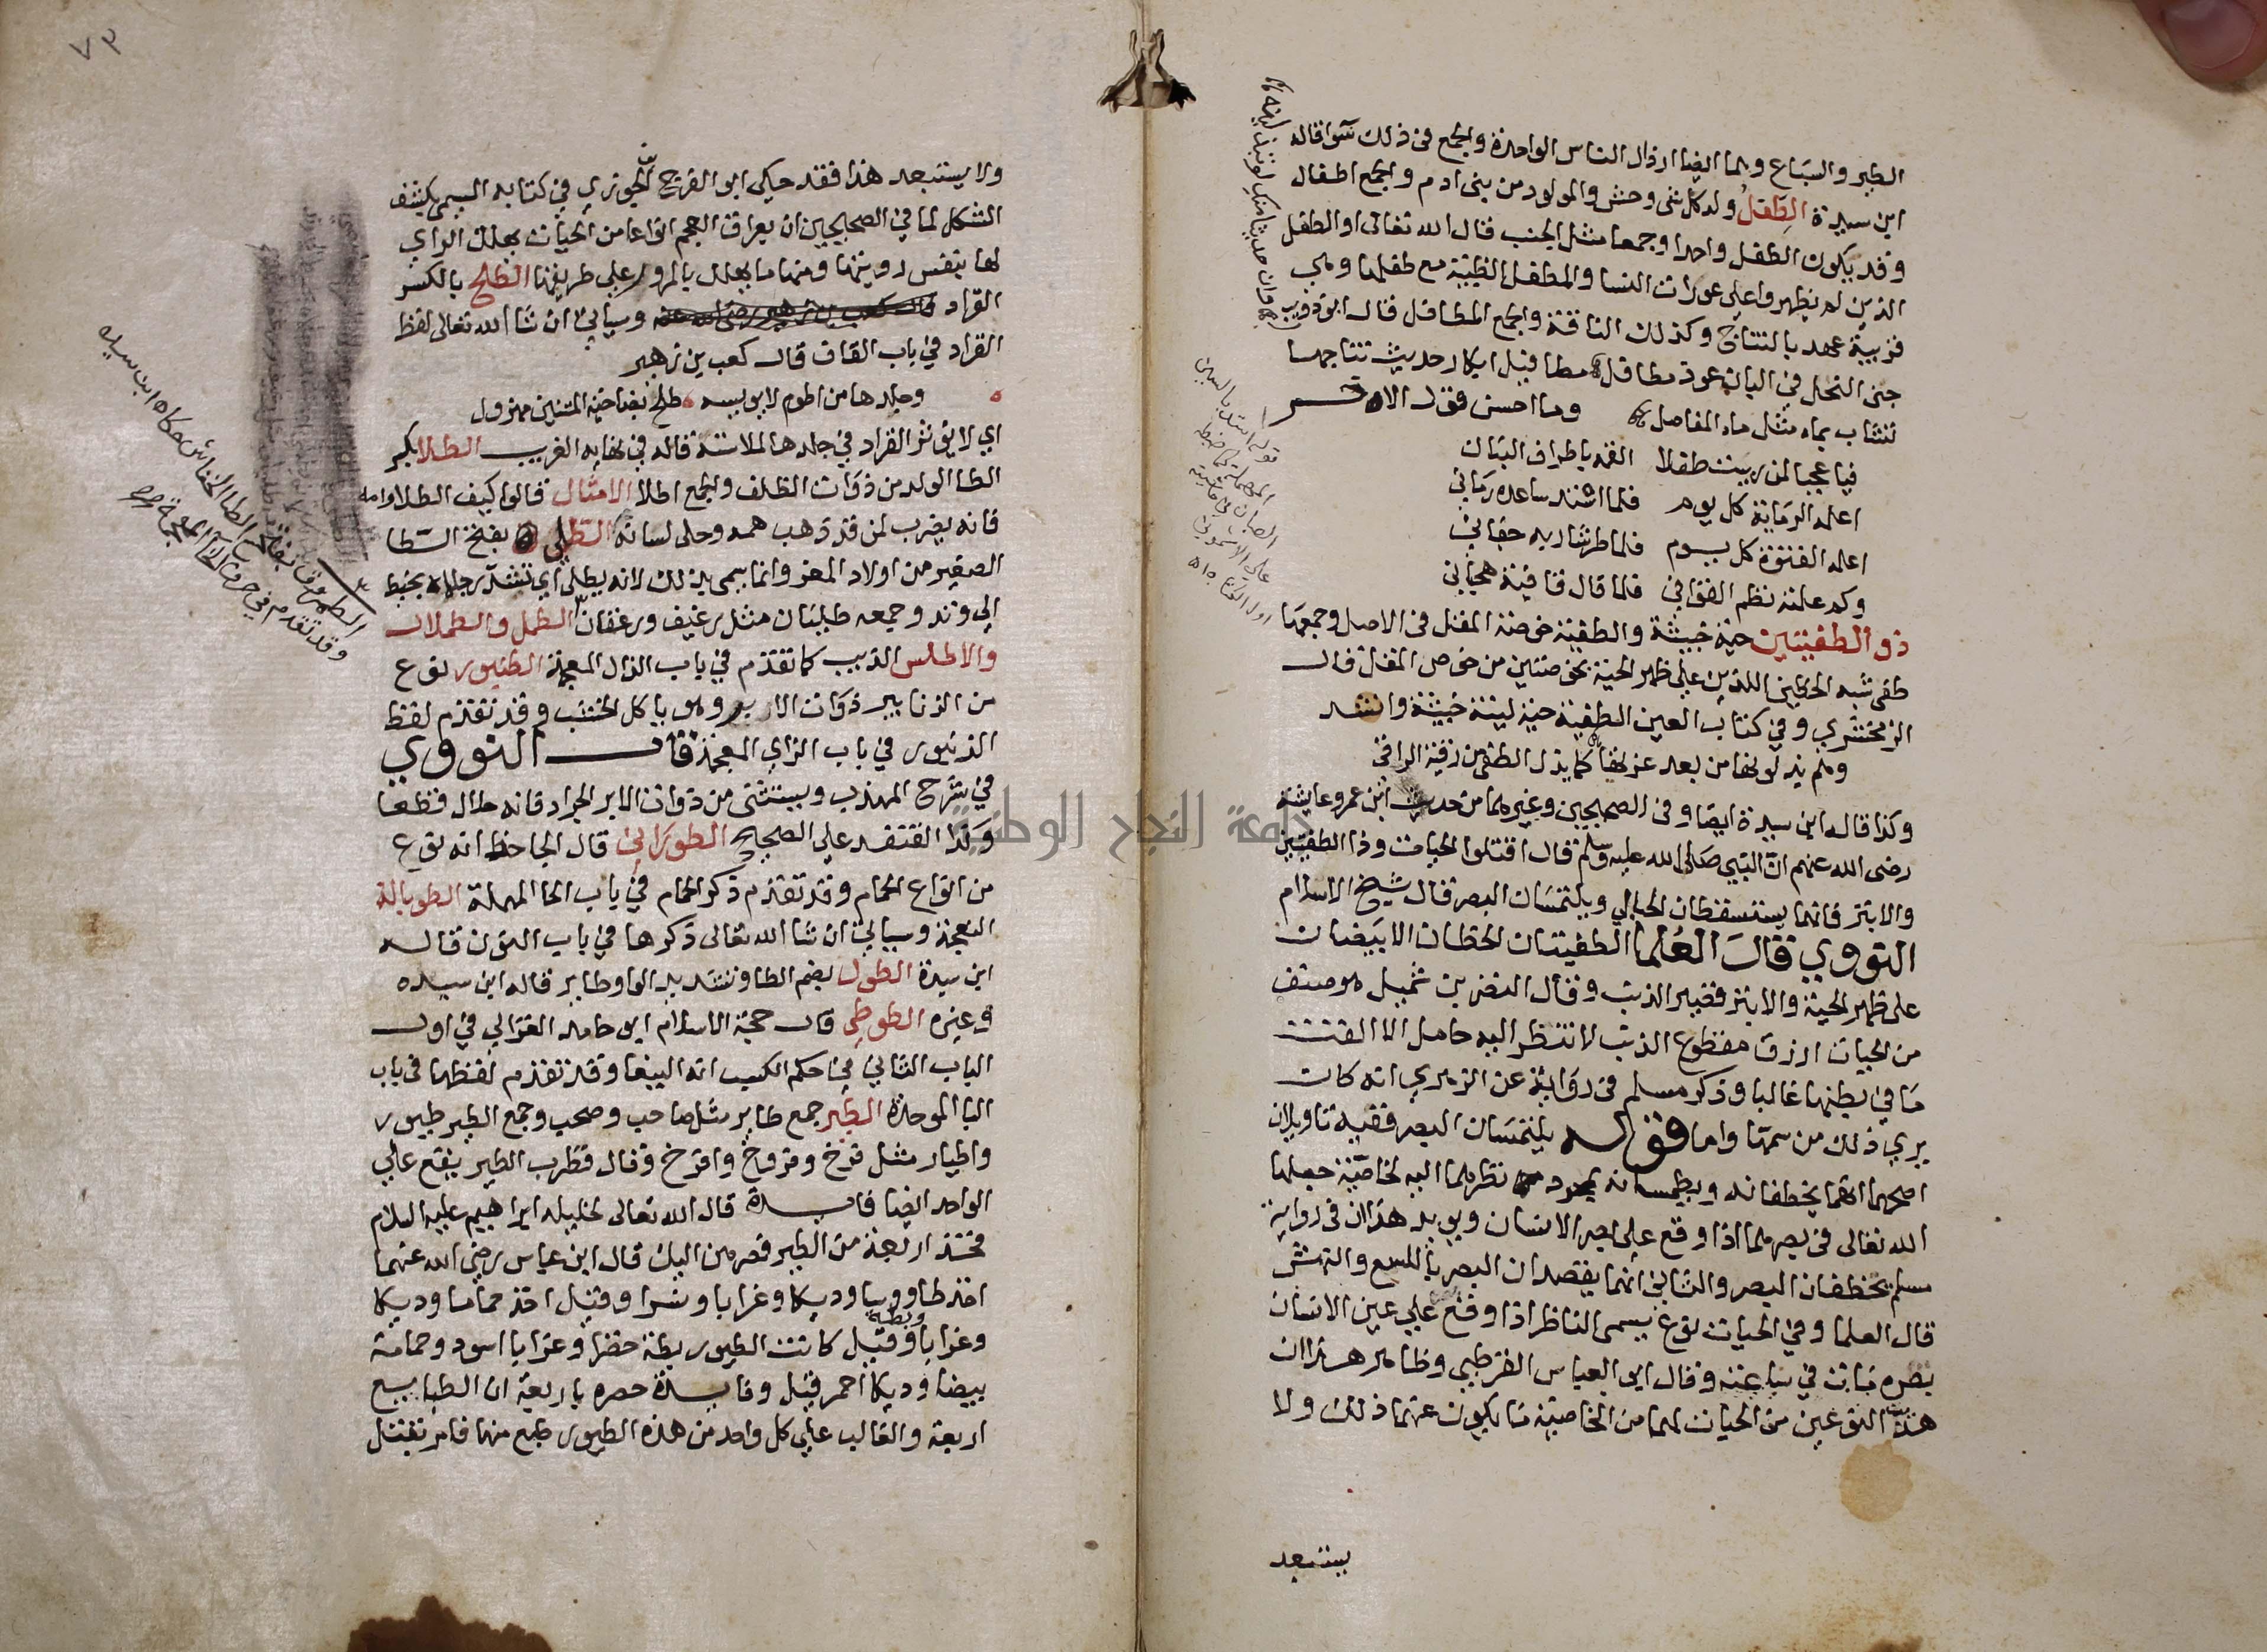 الطير والسباع وهما ايضا ارذال الناس الواحدة والجمع في ذلك سوا قاله
ابن سيدة الطفل ولد كل شي وحش والمولود من بني ادم والجمع اطفال
وقد يكون الطفل واحدا وجمعا مثل الجنب قال الله تعالى او الطفل
الذين لم يظهروا على عورات النسا والمطفل الظبية مع طفلها وهي
قريبة عهد بالنتاج وكذلك الناقة والجمع المطافل قال ابو ذويب
وان حديثا منك لو تبذلينه
جنى النحل في البان عوذ مطافل مطافيل ابكار حديث نتاجها
تشاب بماء مثل ماء المفاصل وما احسن قول الاخر
فيا عجبا لمن ربيت طفلا القمه باطراف البنان
اعلمه الرماية كل يوم فلما اشتد ساعده رماني
اعلمه الفتوة كل يوم فلما طر شاربه جفاني
وكم علمته نظم القوافي فلما قال قافية هجاني
قوله استد بالسين
المهملة كما ضبطه
الصبان في حاشيته
على الاشموني
ذو الطفيتين حية خبيثة والطفية خوصة المقل في الاصل وجمعها
طفى شبه الخطين اللذين على ظهر الحية بخوصتين من خوص المقل قال
الزمخشري وفي كتاب العين الطفية حية لينة خبيثة وانشد
وهم يذلونها من بعد عزتها كما يذل الطفى من رقية الراقي
وكذا قاله ابن سيدة ايضا وفي الصحيحين وغيرهما من حديث ابن عمر وعايشة
رضى الله عنهم ان النبي صلى الله عليه وسلم قال اقتلوا الحيات وذا الطفيتين
والابتر فانهما يستسقطان الحبالى ويلتمسان البصر قال شيخ الاسلام
النووي قال العلما الطفيتان الخطان الابيضان
على ظهر الحية والابتر قصير الذنب وقال النضر بن شميل هو صنف
من الحيات ازرق مقطوع الذنب لا تنظر اليه حامل الا القت
ما في بطنها غالبا وذكر مسلم في رواية عن الزهري انه كان
يري ذلك من سمها واما قوله يلتمسان البصر ففيه تاويلان
اصحهما انهما يخطفانه ويطمسانه بمجرد نظرهما اليه لخاصية جعلها
الله تعالى في بصرهما اذا وقع على بصر الانسان ويويد هذا ان في رواية
مسلم يخطفان البصر والثاني انهما يقصدان البصر باللسع والنهش
قال العلما وفي الحيات نوع يسمى الناظر اذا وقع علي عين الانسان
نظره مات في ساعته وقال ابو العباس القرطبي وظاهر هذا ان
هذين النوعين من الحيات لهما من الخاصية ما يكون عنهما ذلك ولا
يستبعد
٧٣
ولا يستبعد هذا فقد حكي ابو الفرج الجوزي في كتابه المسمى بكشف
المشكل لما في الصحيحين ان بعراق العجم انواعا من الحيات يهلك الراي
لها بنفس رويتها ومنها ما يهلك بالمرور على طريقها الطلح بالكسر
القراد قال كعب بن زهير رضي الله عنه وسياتي ان شا الله تعالى لفظ
القراد في باب القاف قال كعب بن زهير
وجلدها من اطوم لا يويسه طلح بضاحية المتنين مهزول
اي لا يوثر القراد في جلدها لملاسته قاله في نهاية الغريب الطلا بكسر
الطا الولد من ذوات الظلف والجمع اطلا الامثال قالوا كيف الطلا وامه
فانه يضرب لمن قد ذهب همه وخلى لسانه الطلي بفتح الطا
الصغير من اولاد المعز وانما سمى بذلك لانه يطلى اي تشد رجلاه بخيط
الى وتد وجمعه طليان مثل رغيف ورغفان الطمل والطملال
والاطلس الذيب كما تقدم في باب الذال المعجمة الطنبور نوع
من الزنابير ذوات الابر وهو ياكل الخشب وقد تقدم لفظ
الزنبور في باب الزاي المعجمة قال النووي
في شرح المهذب ويستثنى من ذوات الابر الجراد فانه حلال قطعا
وكذا القنفذ على الصحيح الطوراني قال الجاحظ انه نوع
من انواع الحمام وقد تقدم ذكر الحمام في باب الحا المهملة الطوبالة
النعجة وسياتي ان شا الله تعالى ذكرها في باب النون قاله
ابن سيدة الطول بضم الطا وتشديد الواو طاير قاله ابن سيده
وغيره الطوطي قال حجة الاسلام ابو حامد الغزالي في اول
الباب الثاني في حكم الكسب انه الببغا وقد تقدم لفظها في باب
البا الموحدة الطير جمع طاير مثل صاحب وصحب وجمع الطير طيور
واطيار مثل فرخ وفروخ وافراخ وقال قطرب الطير يقع علي
الواحد ايضا فايدة قال الله تعالى لخليله ابراهيم عليه السلام
فخذ اربعة من الطير فصرهن اليك قال ابن عباس رضي الله عنهما
اخذ طاووسا وديكا وغرابا ونسرا وقيل اخذ حماما وديكا
وغرابا وبطة وقيل كانت الطيور بطة خضرا وغرابا اسود وحمامة
بيضا وديكا احمر قيل وفايدة حصره باربعة ان الطبايع
اربعة والغالب على كل واحد من هذه الطيور طبع منها فامر بقتل
الطمروق بفتح الطا الخفاش حكاه ابن سيده
وقد تقدم في حرف الخا المعجمة
جامعة النجاح الوطنية